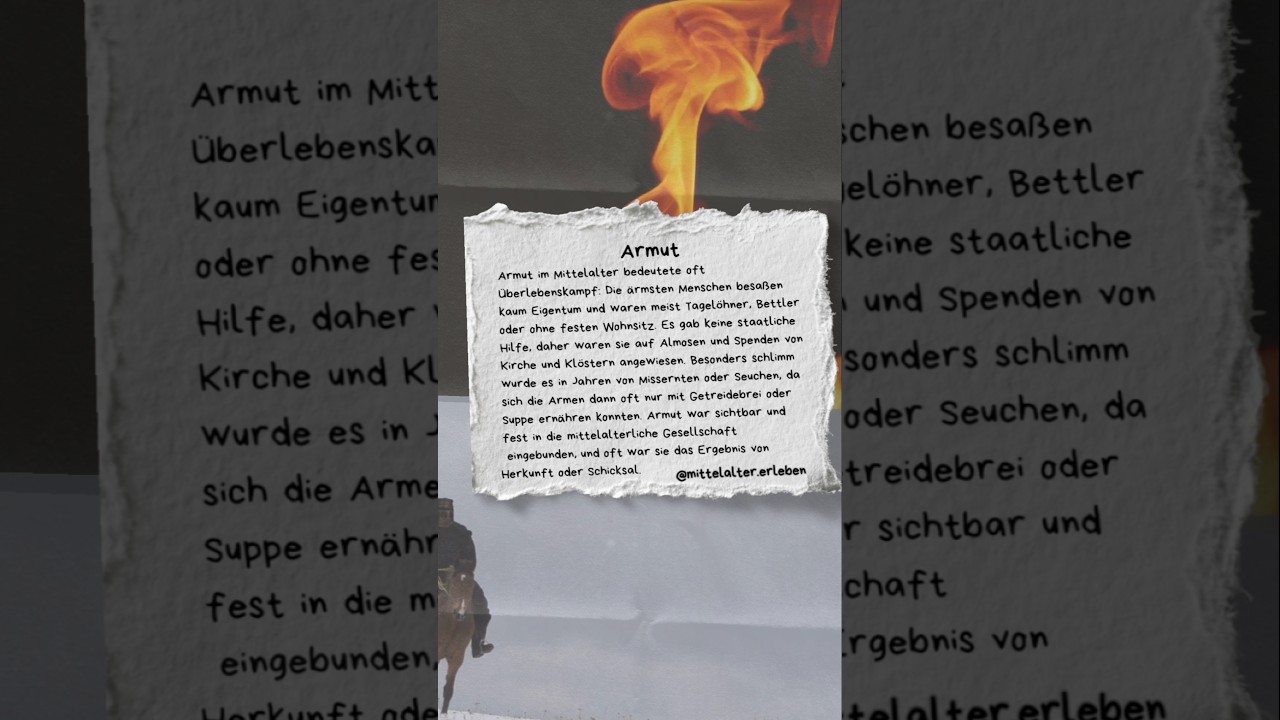 Armut
Armut im Mittelalter bedeutete oft
Überlebenskampf: Die ärmsten Menschen besaßen
kaum Eigentum und waren meist Tagelöhner, Bettler
oder ohne festen Wohnsitz. Es gab keine staatliche
Hilfe, daher waren sie auf Almosen und Spenden von
Kirche und Klöstern angewiesen. Besonders schlimm
wurde es in Jahren von Missernten oder Seuchen, da
sich die Armen dann oft nur mit Getreidebrei oder
Suppe ernähren konnten. Armut war sichtbar und
fest in die mittelalterliche Gesellschaft
eingebunden, und oft war sie das Ergebnis von
Herkunft oder Schicksal.
@mittelalter.erleben